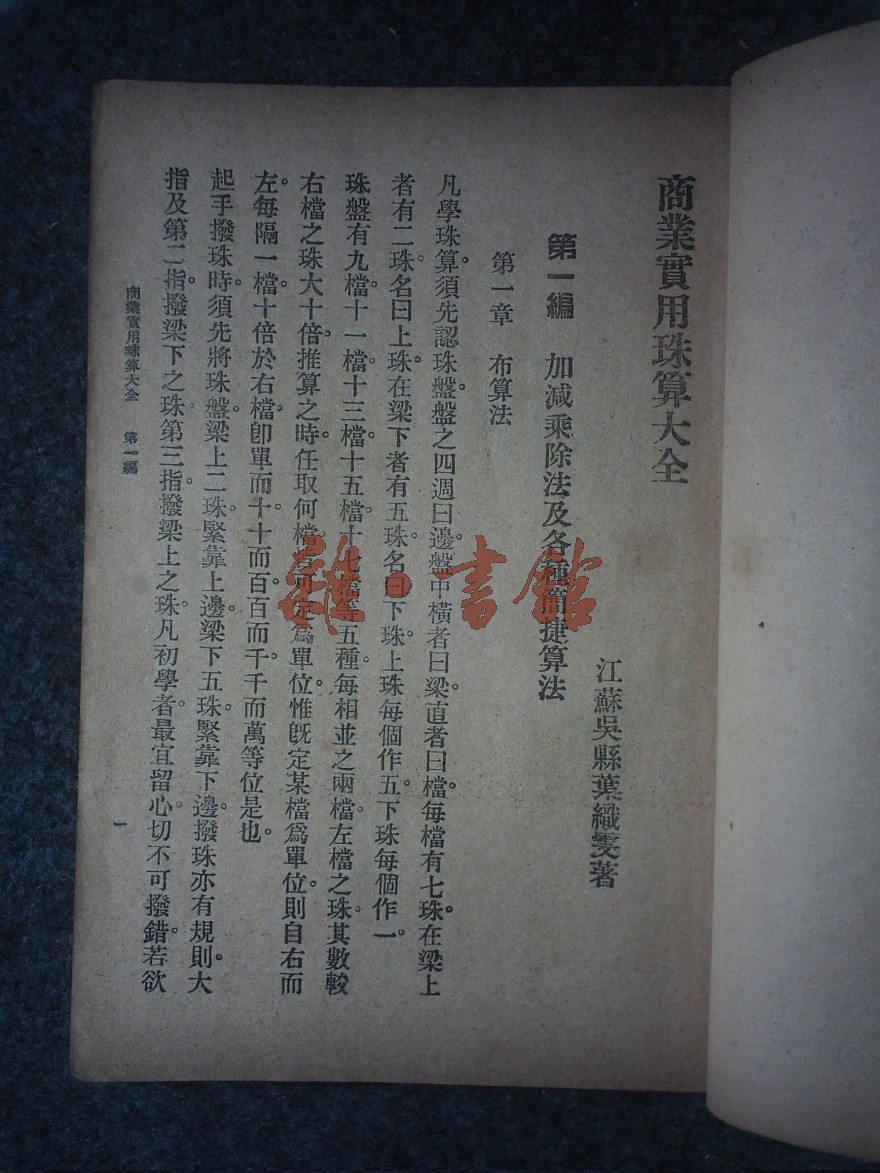 商業實用珠算大全
江蘇吳縣葉織雯著
第一編　加減乘除法及各種簡捷算法
第一章　布算法
凡學珠算。須先認珠盤。盤之四週曰邊。盤中橫者曰梁。直者曰檔。每檔有七珠。在梁上
者有二珠。名曰上珠。在梁下者有五珠。名曰下珠。上珠每個作五。下珠每個作一。
珠盤有九檔。十一檔。十三檔。十五檔。十七檔等五種。每相並之兩檔。左檔之珠。其數較
右檔之珠大十倍。推算之時。任取何檔。皆可定爲單位。惟既定某檔爲單位。則自右而
左。每隔一檔。十倍於右檔。卽單而十。十而百。百而千。千而萬等位是也。
起手撥珠時。須先將珠盤。梁上二珠。緊靠上邊。梁下五珠。緊靠下邊。撥珠亦有規則。大
指及第二指。撥梁下之珠。第三指。撥梁上之珠。凡初學者。最宜留心。切不可撥錯。若欲
商業實用珠算大全　第一編
一
雜·書館